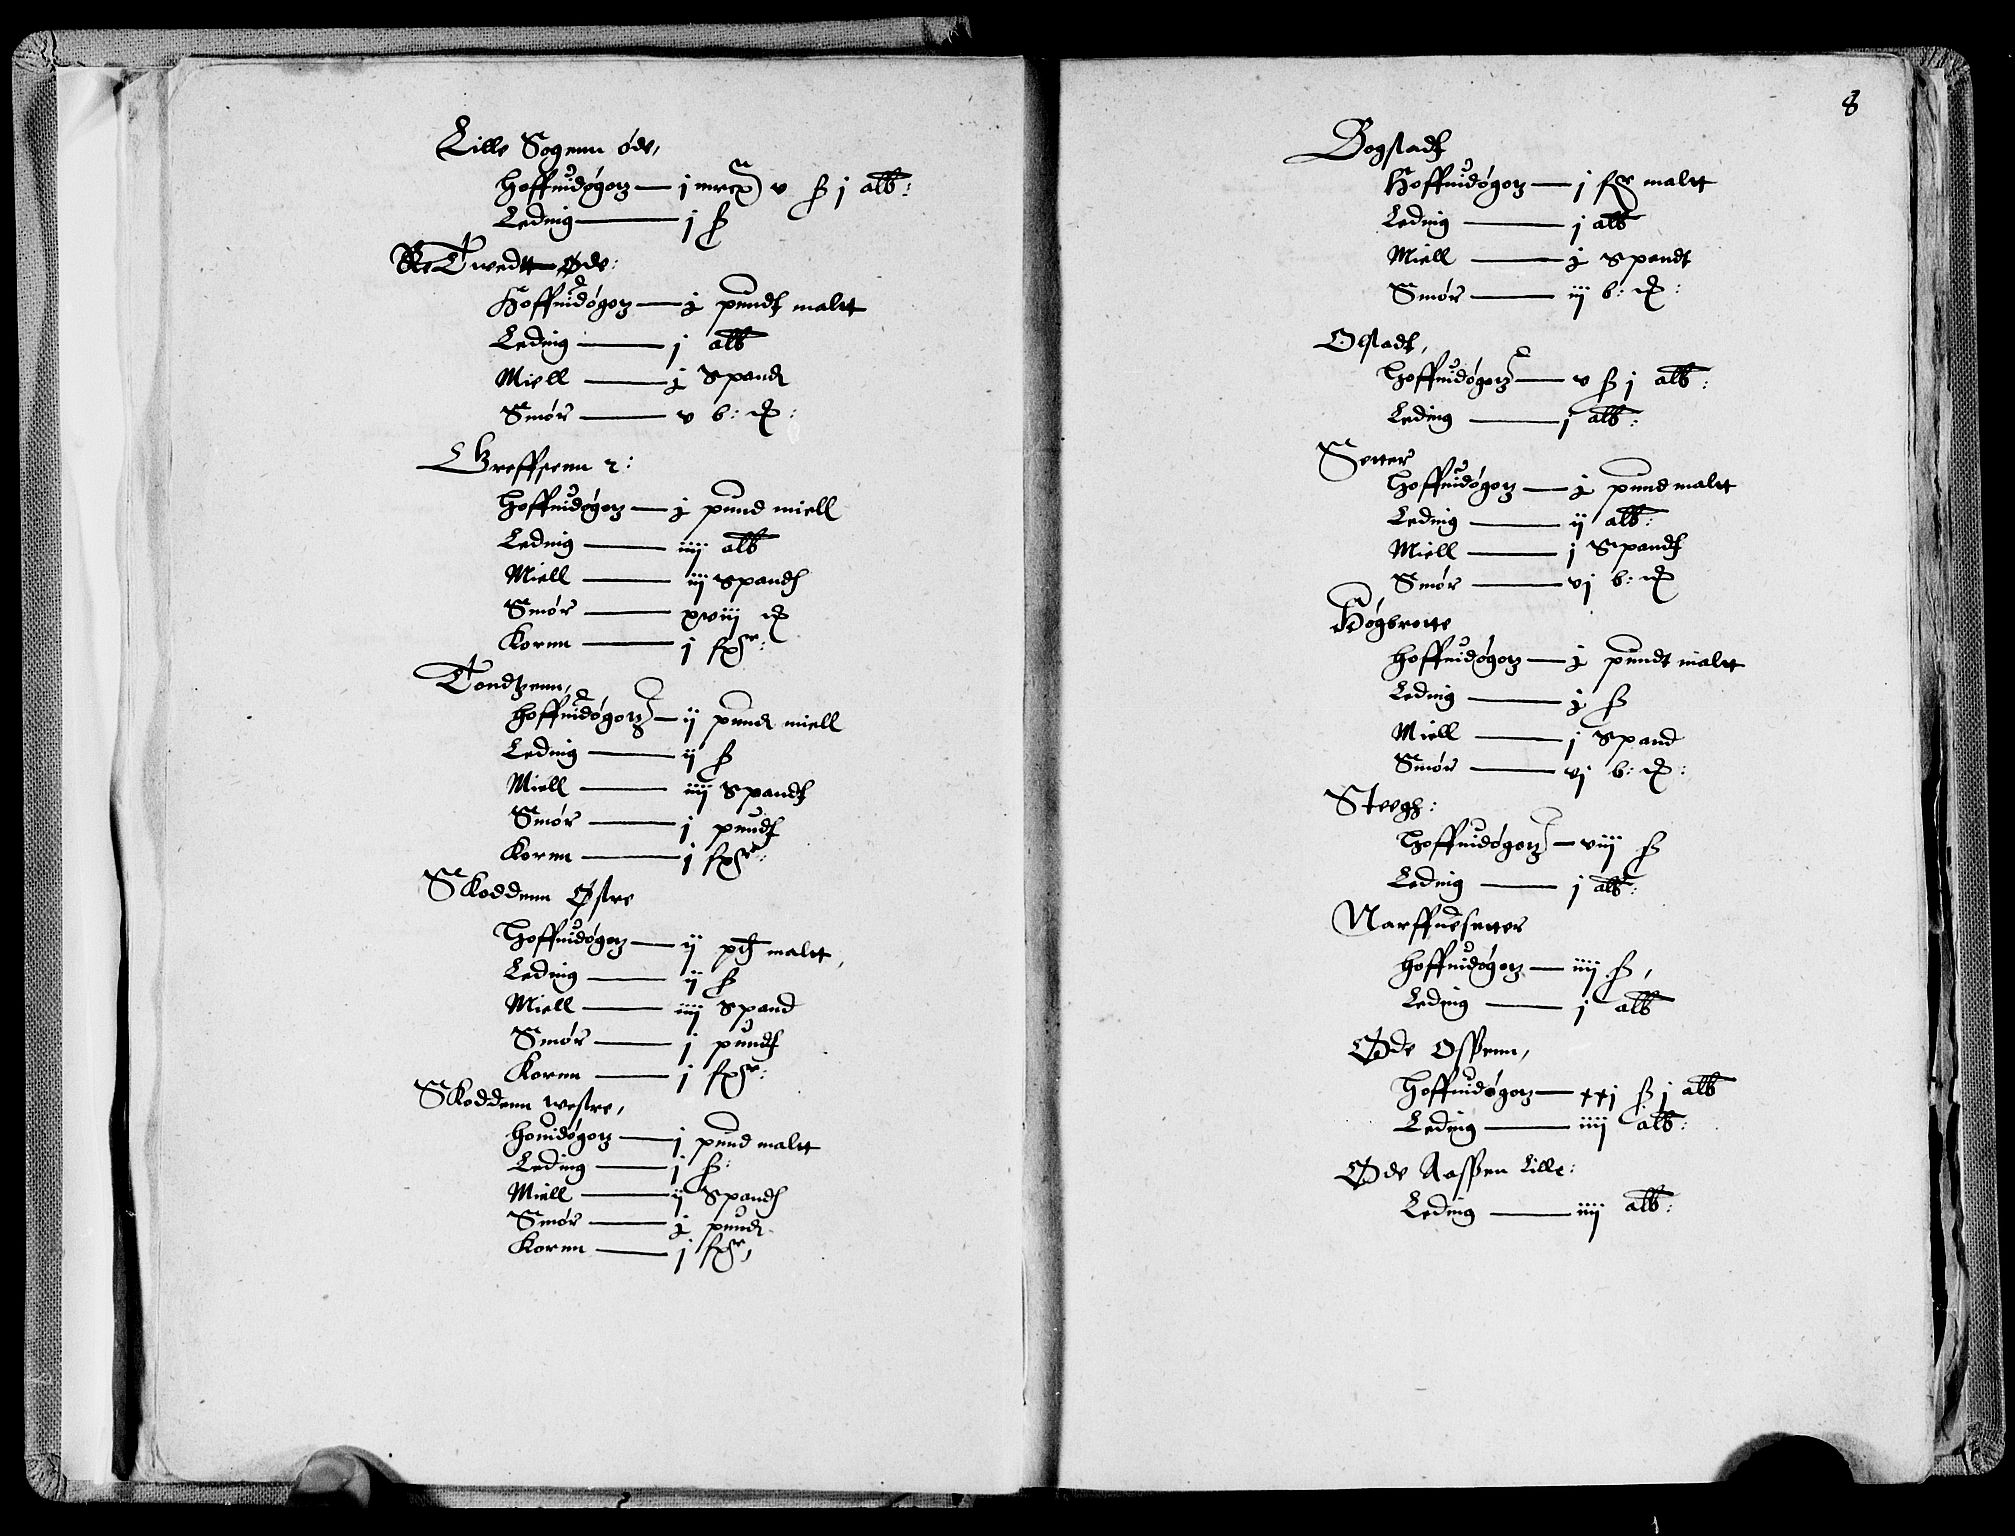 Lille Sogenn øde,
Hoffuidøgetz — j v ß j alb:
Leding — j ß
Twedtt Øde:
Hoffuidøgetz — j pundt maltt
Leding — j alb
Miell — j Spand
Smør — v b: m͞k:
Greffsenn 2:
Hoffuidøgetz — j pund miell
Leding — iiij alb
Miell — iij Spandh
Smør — xviij m͞k
Kornn — j
Tondtzenn,
Hoffuidøgetz — ij pund miell
Leding — ij ß
Miell — iiij Spandt
Smør — j pundt
Kornn — j
Skoddenn Østre
Hoffuidøgetz — ij pd maltt,
Leding — ij ß
Miell — iiij Spand
Smør — j pundt
Kornn — j
Skoddenn westre,
Houidøgetz — j pund maltt
Leding — j ß:
Miell — ij Spandh
Smør — j pund
Kornn — j
8
Bogstadt
Hoffuidøgetz — j maltt
Leding — j alb
Miell — j Spandt
Smør — iij b: m͞k:
Olstadt,
Hoffuidøgetz — v ß j alb:
Leding — j alb:
Setter
Hoffuidøgetz — j pund maltt
Leding — ij alb:
Miell — j Spandt
Smør — vj b: m͞k
Høgbrotte
Hoffuidøgetz — j pundt maltt
Leding — j ß
Miell — j Spand
Smør — vj b: m͞k:
Steegh:
Hoffuidøgetz — viij ß
Leding — j alb:
Narffuesetter
Hoffuidøgetz — iiij ß,
Leding — j alb
Øde Osßenn,
Hoffuidøgetz — xxj ß j alb
Leding — iiij alb:
Øde Aasßen Lille:
Leding — iiij alb: